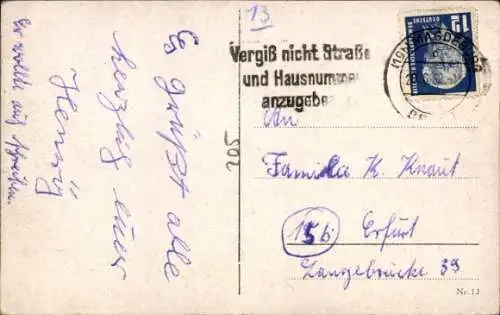 13
Vergiß nicht Straße
und Hausnummer
anzugeben
(10) MAGDEBURG
12
DEUTSCHE
Es grüßt alle
herzlich euer
Hennig
Er wollte auf
205
An
Familie K. Knaut
15b Erfurt
Langebrücke 39
Nr. 13